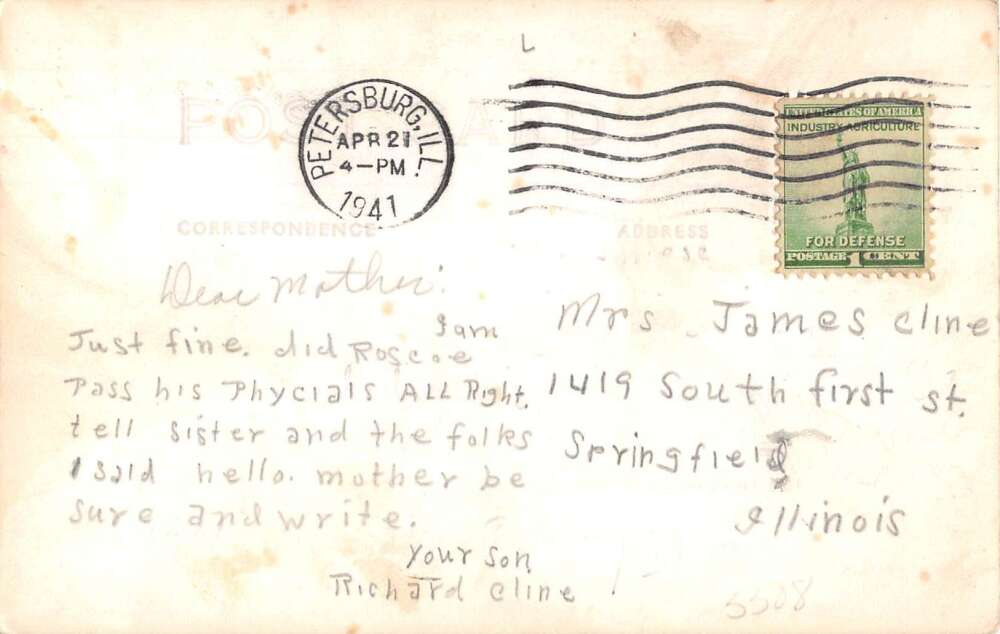 L
POST CARD
PETERSBURG, ILL.
APR 21
4-PM
1941
UNITED STATES OF AMERICA
INDUSTRY AGRICULTURE
FOR DEFENSE
POSTAGE 1 CENT
CORRESPONDENCE
ADDRESS
Dear Mother:
I am
Just fine. did Roscoe
Pass his Phycials ALL Right.
tell sister and the folks
I said hello. mother be
sure and write.
Your Son
Richard Cline
Mrs. James Cline
1419 South first st.
Springfield
Illinois
5508